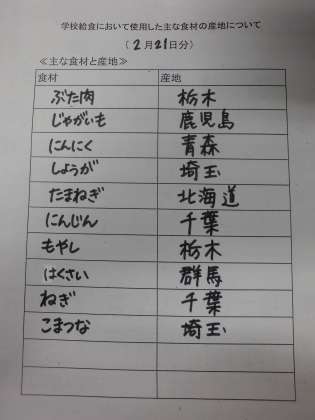 学校給食において使用した主な食材の産地について
(2月21日分)
≪主な食材と産地≫
食材 産地
ぶた肉 栃木
じゃがいも 鹿児島
にんにく 青森
しょうが 埼玉
たまねぎ 北海道
にんじん 千葉
もやし 栃木
はくさい 群馬
ねぎ 千葉
こまつな 埼玉